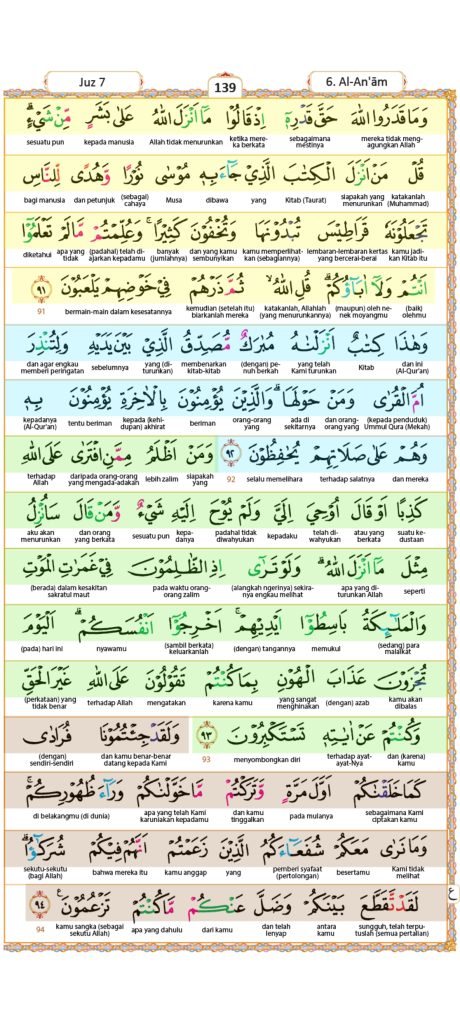 Juz 7
139
6. Al-An'ām
وَمَا قَدَرُوا اللّٰهَ حَقَّ قَدْرِهٖٓ اِذْ قَالُوْا مَآ اَنْزَلَ اللّٰهُ عَلٰى بَشَرٍ مِّنْ شَيْءٍۗ
mereka tidak mengagungkan Allah sebagaimana mestinya ketika mereka berkata Allah tidak menurunkan kepada manusia sesuatu pun
قُلْ مَنْ اَنْزَلَ الْكِتٰبَ الَّذِيْ جَاۤءَ بِهٖ مُوْسٰى نُوْرًا وَّهُدًى لِّلنَّاسِ
katakanlah (Muhammad) siapakah yang menurunkan Kitab (Taurat) yang dibawa Musa (sebagai) cahaya dan petunjuk bagi manusia
تَجْعَلُوْنَهٗ قَرَاطِيْسَ تُبْدُوْنَهَا وَتُخْفُوْنَ كَثِيْرًاۚ وَعُلِّمْتُمْ مَّا لَمْ تَعْلَمُوْٓا
kamu jadikan Kitab itu lembaran-lembaran kertas yang bercerai-berai kamu memperlihatkan (sebagiannya) dan yang kamu sembunyikan banyak (jumlahnya) (padahal) telah diajarkan kepadamu apa yang tidak diketahui
اَنْتُمْ وَلَآ اٰبَاۤؤُكُمْۗ قُلِ اللّٰهُۙ ثُمَّ ذَرْهُمْ فِيْ خَوْضِهِمْ يَلْعَبُوْنَ ۝٩١
(baik) olehmu (maupun) oleh nenek moyangmu katakanlah, Allahlah (yang menurunkannya) kemudian (setelah itu) biarkanlah mereka bermain-main dalam kesesatannya 91
وَهٰذَا كِتٰبٌ اَنْزَلْنٰهُ مُبٰرَكٌ مُّصَدِّقُ الَّذِيْ بَيْنَ يَدَيْهِ وَلِتُنْذِرَ
dan ini (Al-Qur'an) Kitab yang telah Kami turunkan (dengan) penuh berkah membenarkan kitab-kitab yang (diturunkan) sebelumnya dan agar engkau memberi peringatan
اُمَّ الْقُرٰى وَمَنْ حَوْلَهَاۗ وَالَّذِيْنَ يُؤْمِنُوْنَ بِالْاٰخِرَةِ يُؤْمِنُوْنَ بِهٖ
(kepada penduduk) Ummul Qura (Mekah) dan orang-orang yang ada di sekitarnya orang-orang yang beriman kepada (kehidupan) akhirat tentu beriman kepadanya (Al-Qur'an)
وَهُمْ عَلٰى صَلَاتِهِمْ يُحٰفِظُوْنَ ۝٩٢ وَمَنْ اَظْلَمُ مِمَّنِ افْتَرٰى عَلَى اللّٰهِ
dan mereka terhadap salatnya selalu memelihara 92 siapakah yang lebih zalim daripada orang-orang yang mengada-adakan terhadap Allah
كَذِبًا اَوْ قَالَ اُوْحِيَ اِلَيَّ وَلَمْ يُوْحَ اِلَيْهِ شَيْءٌ وَّمَنْ قَالَ سَاُنْزِلُ
suatu kedustaan atau yang berkata telah diwahyukan kepadaku padahal tidak diwahyukan kepadanya sesuatu pun dan orang yang berkata aku akan menurunkan
مِثْلَ مَآ اَنْزَلَ اللّٰهُۗ وَلَوْ تَرٰٓى اِذِ الظّٰلِمُوْنَ فِيْ غَمَرٰتِ الْمَوْتِ
seperti apa yang diturunkan Allah (alangkah ngerinya) sekiranya engkau melihat pada waktu orang-orang zalim (berada) dalam kesakitan sakratul maut
وَالْمَلٰۤىِٕكَةُ بَاسِطُوْٓا اَيْدِيْهِمْۚ اَخْرِجُوْٓا اَنْفُسَكُمْۗ اَلْيَوْمَ
(sedang) para malaikat memukul (dengan) tangannya (sambil berkata) keluarkanlah nyawamu (pada) hari ini
تُجْزَوْنَ عَذَابَ الْهُوْنِ بِمَا كُنْتُمْ تَقُوْلُوْنَ عَلَى اللّٰهِ غَيْرَ الْحَقِّ
kamu akan dibalas (dengan) azab yang sangat menghinakan karena kamu mengatakan terhadap Allah (perkataan) yang tidak benar
وَكُنْتُمْ عَنْ اٰيٰتِهٖ تَسْتَكْبِرُوْنَ ۝٩٣ وَلَقَدْ جِئْتُمُوْنَا فُرَادٰى
dan (karena) kamu terhadap ayat-ayat-Nya menyombongkan diri 93 dan kamu benar-benar datang kepada Kami (dengan) sendiri-sendiri
كَمَا خَلَقْنٰكُمْ اَوَّلَ مَرَّةٍ وَّتَرَكْتُمْ مَّا خَوَّلْنٰكُمْ وَرَاۤءَ ظُهُوْرِكُمْۚ
sebagaimana Kami ciptakan kamu pada mulanya dan kamu tinggalkan apa yang telah Kami karuniakan kepadamu di belakangmu (di dunia)
وَمَا نَرٰى مَعَكُمْ شُفَعَاۤءَكُمُ الَّذِيْنَ زَعَمْتُمْ اَنَّهُمْ فِيْكُمْ شُرَكٰۤؤُاۗ
Kami tidak melihat besertamu pemberi syafaat (pertolongan) yang kamu anggap bahwa mereka itu sekutu-sekutu (bagi Allah)
لَقَدْ تَّقَطَّعَ بَيْنَكُمْ وَضَلَّ عَنْكُمْ مَّا كُنْتُمْ تَزْعُمُوْنَ ۝٩٤ ع
sungguh, telah terputuslah (semua pertalian) antara kamu dan telah lenyap dari kamu apa yang dahulu kamu sangka (sebagai sekutu Allah) 94